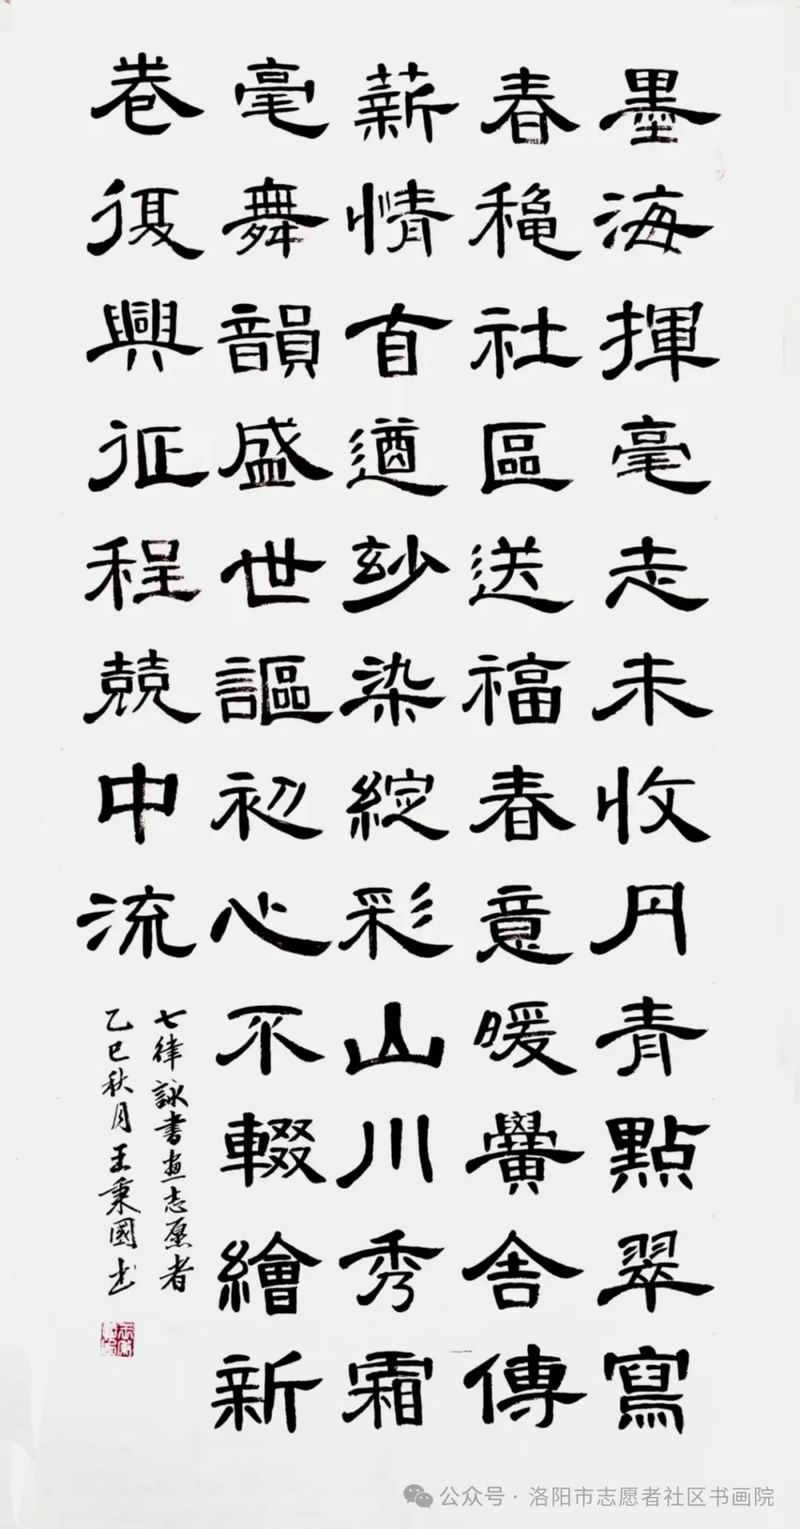 墨海揮毫志未收丹青點翠寫
春穐社區送福春意暖黌舍傳
薪情自遒玅染綻彩山川秀霜
毫舞韻盛世謳初心不輟繪新
卷復興征程競中流
七律詠書畫志愿者
乙巳秋月王秉國书
公众号·洛阳市志愿者社区书画院